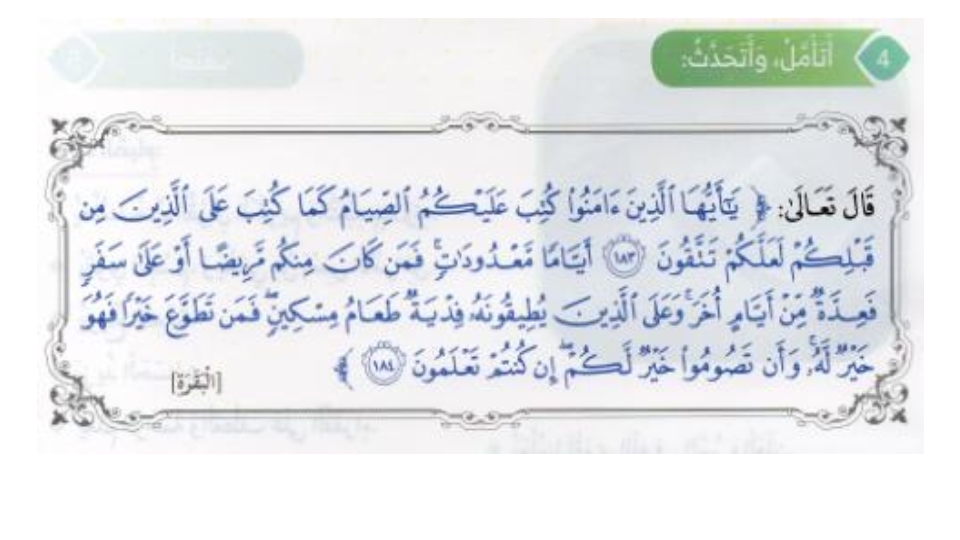 4 أَتَأَمَّلُ، وَأَتَحَدَّثُ:
قَالَ تَعَالَىٰ: ﴿ يَٰٓأَيُّهَا ٱلَّذِينَ ءَامَنُوا۟ كُتِبَ عَلَيْكُمُ ٱلصِّيَامُ كَمَا كُتِبَ عَلَى ٱلَّذِينَ مِن
قَبْلِكُمْ لَعَلَّكُمْ تَتَّقُونَ ١٨٣ أَيَّامًا مَّعْدُودَٰتٍ ۚ فَمَن كَانَ مِنكُم مَّرِيضًا أَوْ عَلَىٰ سَفَرٍ
فَعِدَّةٌ مِّنْ أَيَّامٍ أُخَرَ ۚ وَعَلَى ٱلَّذِينَ يُطِيقُونَهُۥ فِدْيَةٌ طَعَامُ مِسْكِينٍ ۖ فَمَن تَطَوَّعَ خَيْرًا فَهُوَ
خَيْرٌ لَّهُۥ ۚ وَأَن تَصُومُوا۟ خَيْرٌ لَّكُمْ ۖ إِن كُنتُمْ تَعْلَمُونَ ١٨٤ ﴾ [الْبَقَرَة]